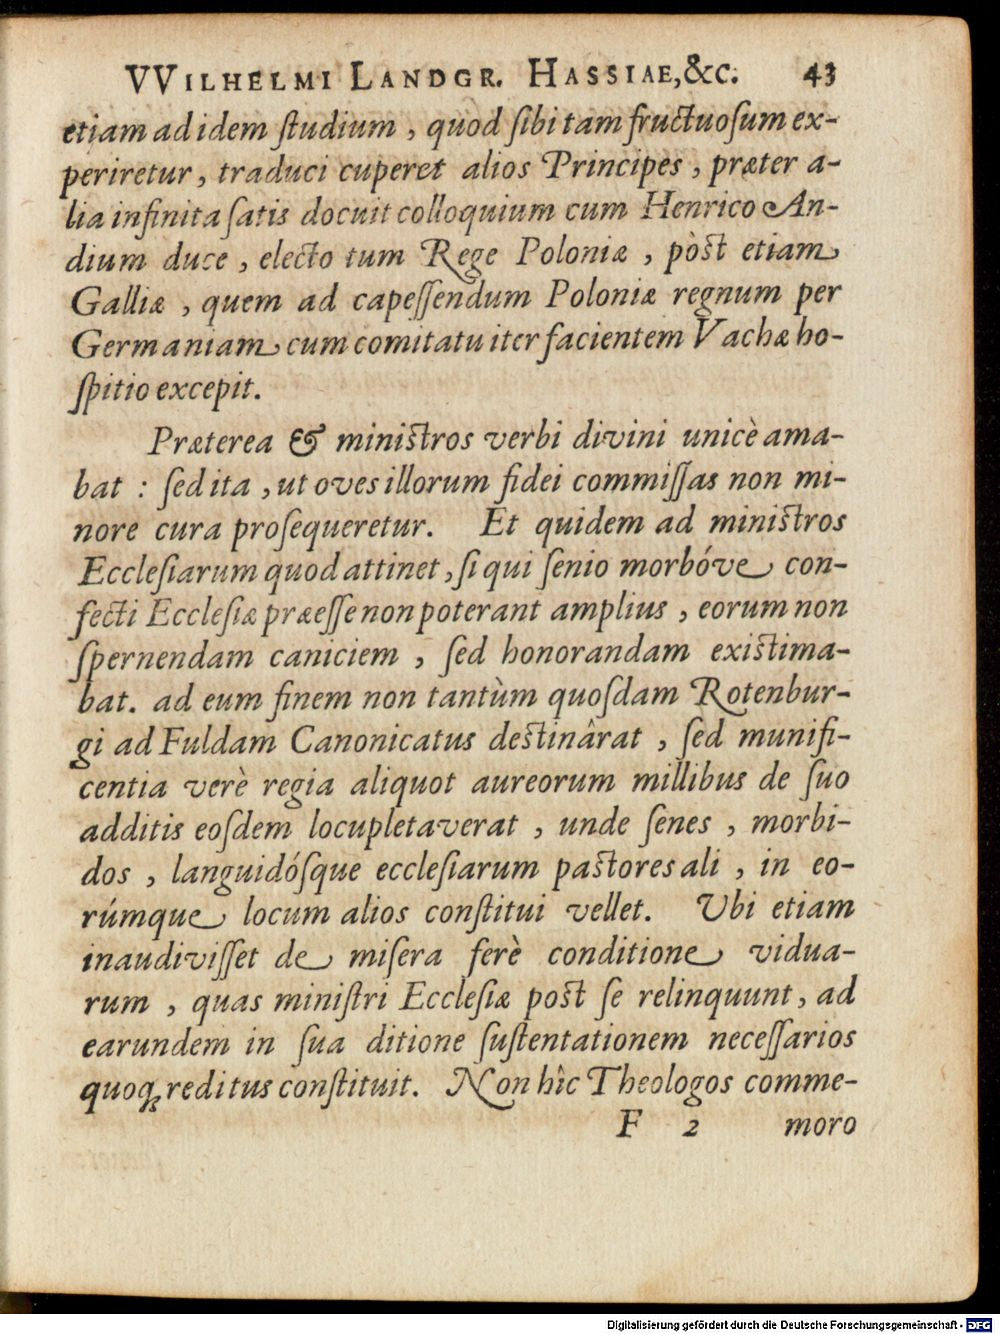 VVILHELMI LANDGR. HASSIAE, &C. 43
etiam ad idem ſtudium, quod ſibi tam fructuoſum ex-
periretur, traduci cuperet alios Principes, præter a-
lia infinita ſatis docuit colloquium cum Henrico An-
dium duce, electo tum Rege Poloniæ, pòſt etiam
Galliæ, quem ad capeſſendum Poloniæ regnum per
Germaniam cum comitatu iter facientem Vachæ ho-
ſpitio excepit.
Præterea & miniſtros verbi divini unicè ama-
bat: ſed ita, ut oves illorum fidei commiſſas non mi-
nore cura proſequeretur. Et quidem ad miniſtros
Eccleſiarum quod attinet, ſi qui ſenio morbóve con-
fecti Eccleſiæ præeſſe non poterant amplius, eorum non
ſpernendam caniciem, ſed honorandam exiſtima-
bat. ad eum finem non tantùm quoſdam Rotenbur-
gi ad Fuldam Canonicatus deſtinârat, ſed munifi-
centia verè regia aliquot aureorum millibus de ſuo
additis eoſdem locupletaverat, unde ſenes, morbi-
dos, languidóſque eccleſiarum paſtores ali, in eo-
rúmque locum alios conſtitui vellet. Ubi etiam
inaudiviſſet de miſera ferè conditione vidua-
rum, quas miniſtri Eccleſiæ poſt ſe relinquunt, ad
earundem in ſua ditione ſuſtentationem neceſſarios
quoqꝫ reditus conſtituit. Non hîc Theologos comme-
F 2 moro
Digitalisierung gefördert durch die Deutsche Forschungsgemeinschaft - DFG